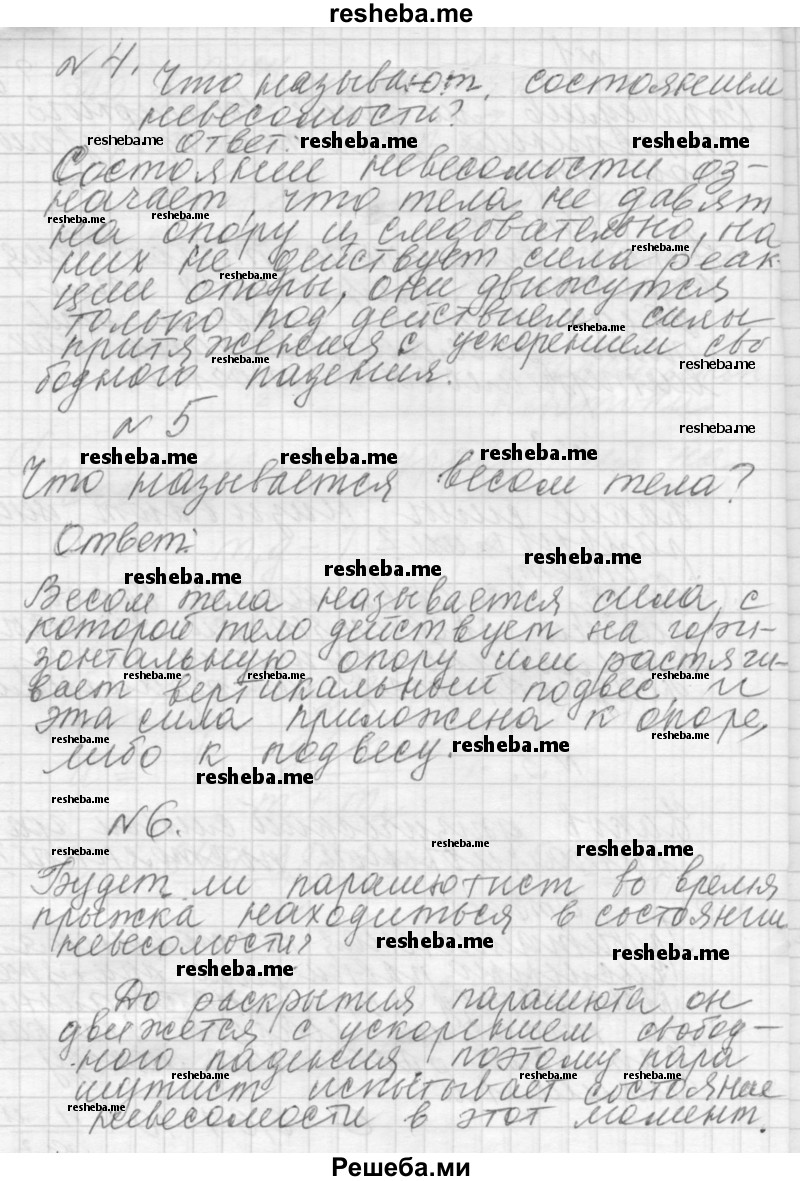 resheba.me
№ 4. Что называют состоянием
невесомости?
resheba.me Ответ: resheba.me resheba.me
Состояние невесомости оз-
начает, что тела не давят
resheba.me resheba.me
на опору и, следовательно, на
resheba.me
них не действует сила реак-
resheba.me
ции опоры, они движутся
только под действием силы
resheba.me
притяжения с ускорением сво
resheba.me resheba.me
бодного падения.
№ 5
resheba.me
resheba.me resheba.me resheba.me
Что называется весом тела?
Ответ:
resheba.me
resheba.me resheba.me
Весом тела называется сила, с
которой тело действует на гори-
зонтальную опору или растяги-
resheba.me resheba.me resheba.me
вает вертикальный подвес, и
эта сила приложена к опоре,
resheba.me resheba.me resheba.me
либо к подвесу.
resheba.me
resheba.me
№ 6.
resheba.me resheba.me resheba.me
Будет ли парашютист во время
прыжка находиться в состоянии
невесомости?
resheba.me resheba.me
resheba.me
До раскрытия парашюта он
движется с ускорением свобод-
ного падения, поэтому пара
resheba.me resheba.me resheba.me
шутист испытывает состояние
resheba.me
невесомости в этот момент.
Решеба.ми